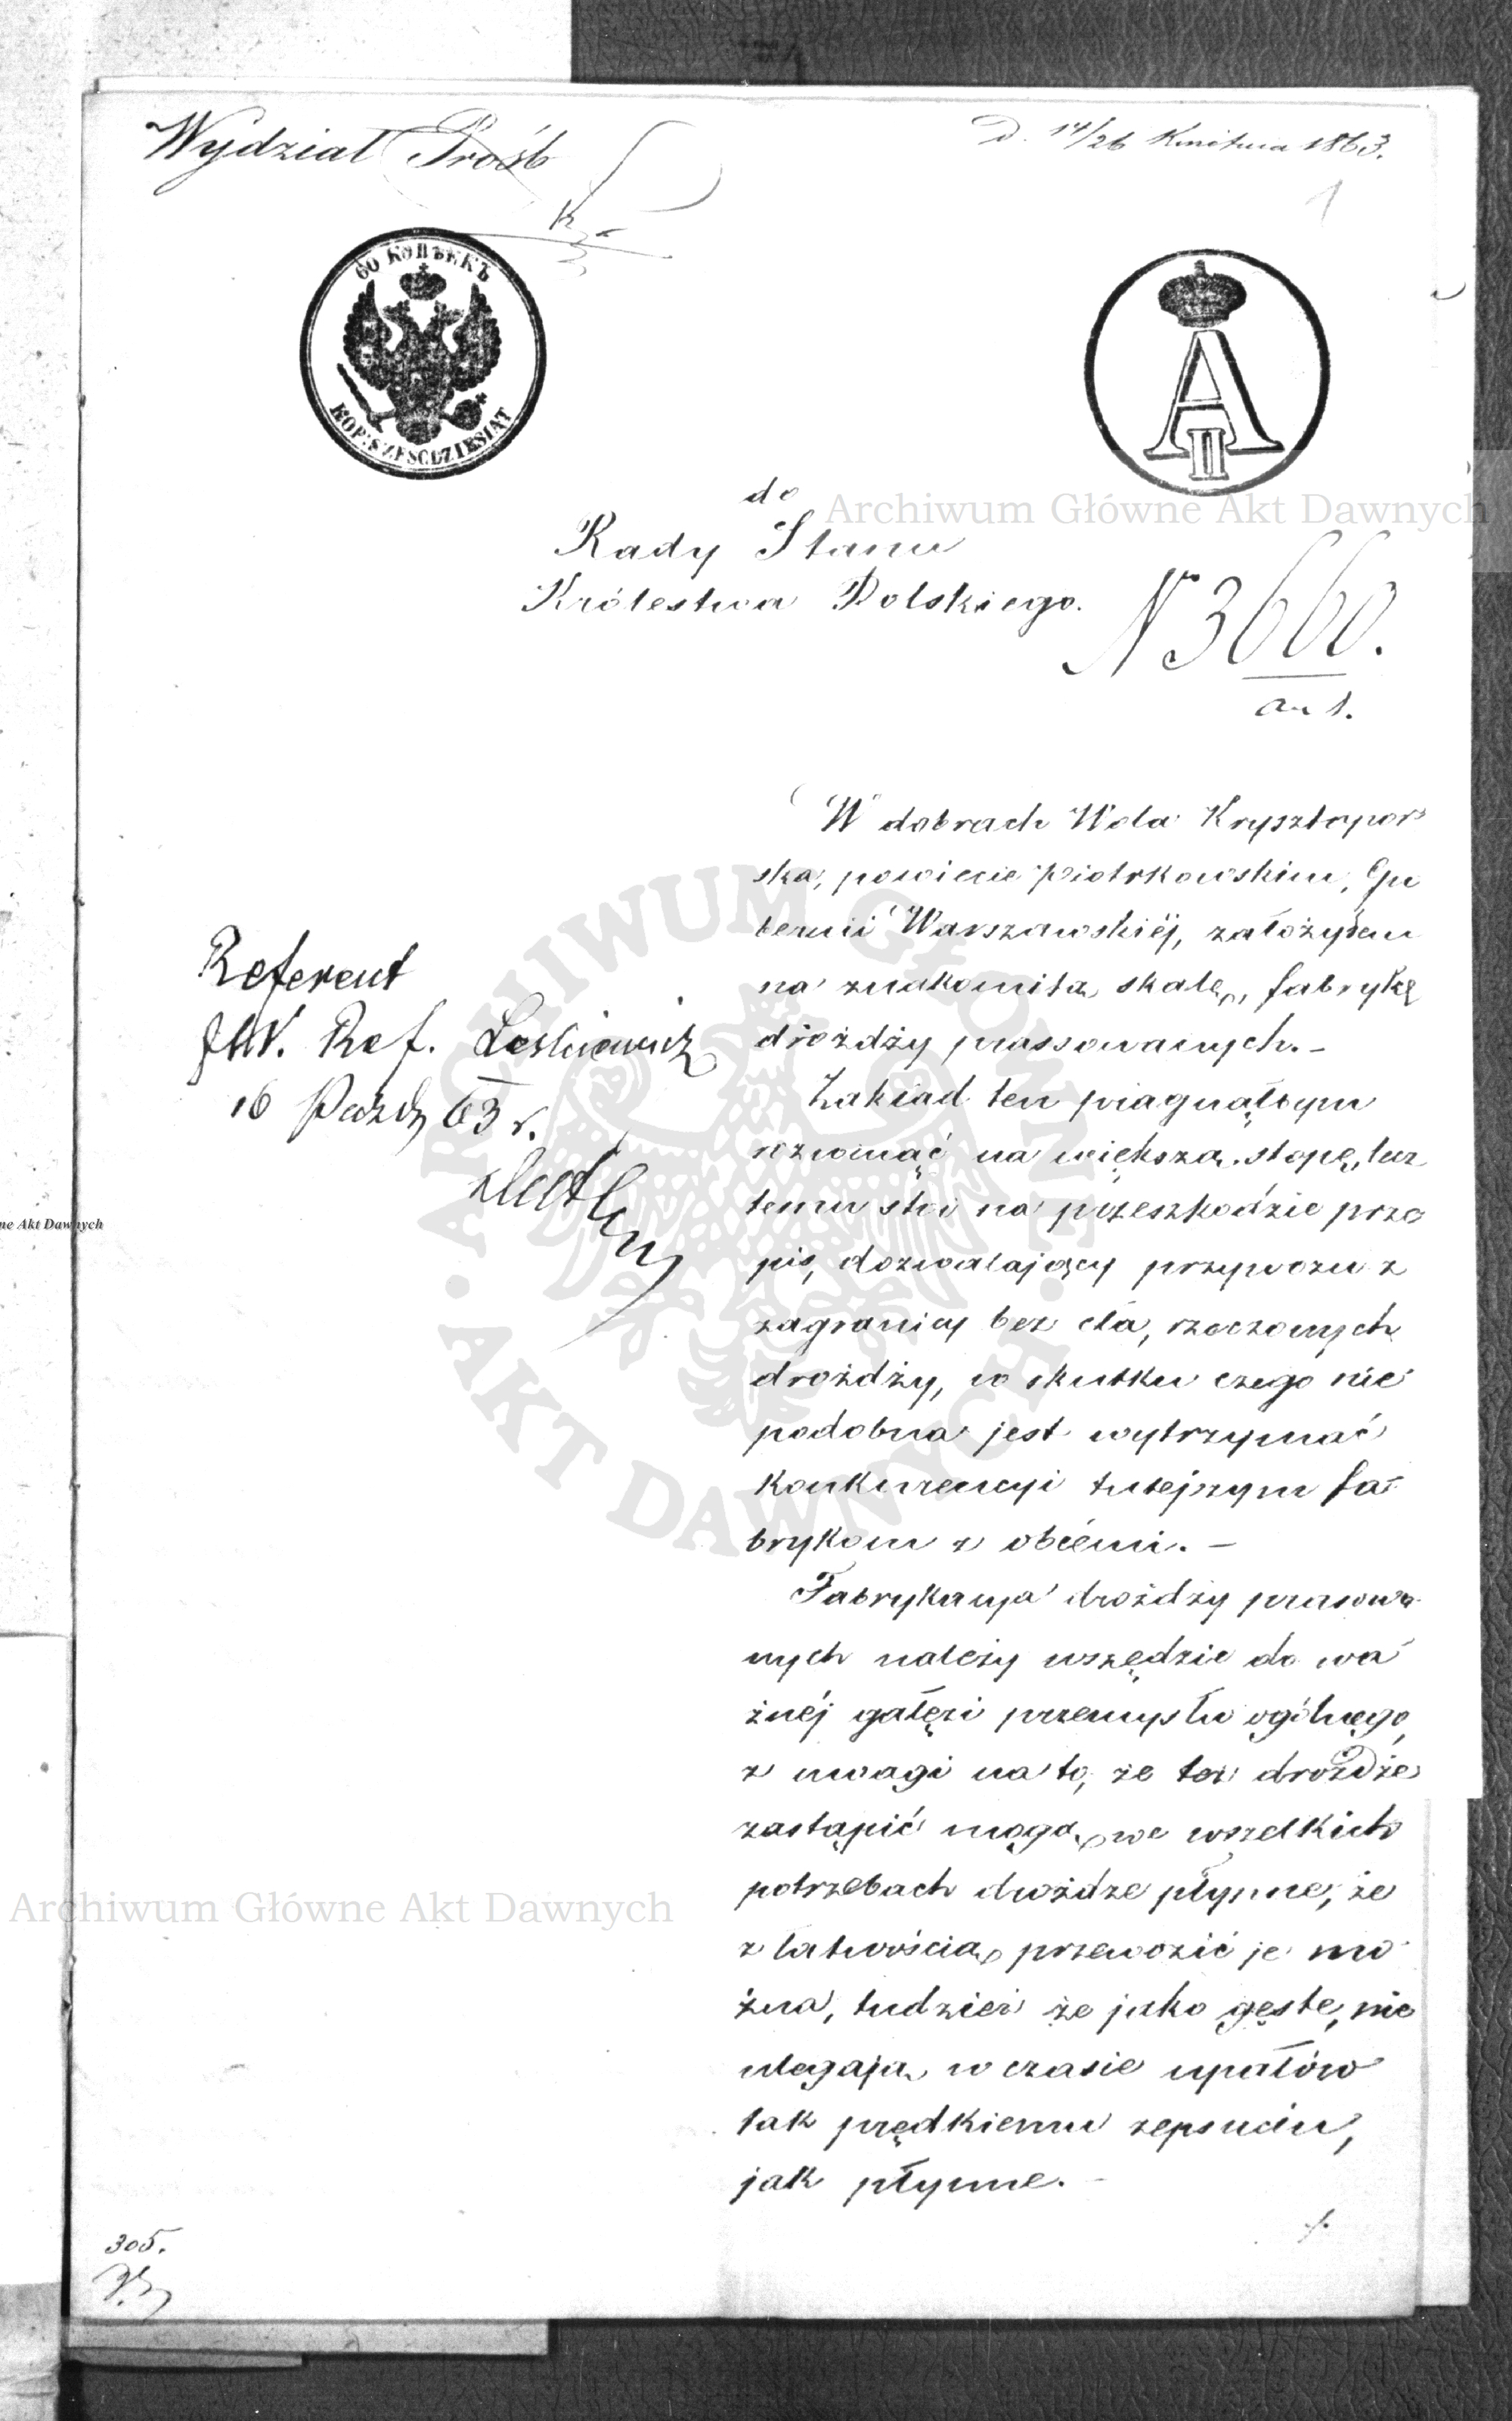 Wydział Próśb
D. 14/26 Kwietnia 1863.
1
60 КОПѢЕКЪ
KOP: SZEŚĆDZIESIĄT
A II
do
Rady Stanu
Królestwa Polskiego.
N 3660.
an 1.
W dobrach Wola Krysztopor
ska, powiecie Piotrkowskim, Gu
bernii Warszawskiéj, założyłem
na znakomitą skalę, fabrykę
drożdży prassowanych. –
Zakład ten pragnąłbym
rozwinąć na większą stopę, lecz
temu stoi na przeszkodzie prze
pis, dozwalający przywozu z
zagranicy bez cła, rzeczonych
drożdży, w skutku czego nie
podobna jest wytrzymać
konkurencyi tutejszym fa
brykom z obcemi. –
Fabrykacya drożdży prasowa
nych należy wszędzie do wa
żnéj gałęzi przemysłu ogólnego,
z uwagi na to, że też drożdże
zastąpić mogą, we wszelkich
potrzebach drożdże płynne, że
z łatwością przewozić je mo
żna, tudzież że jako gęste, nie
ulegają w czasie upałów
tak prędkiemu zepsuciu,
jak płynne. –
Referent
JW. Ref. Leskiewicz
16 Paźdz 63 r.
305.
Archiwum Główne Akt Dawnych
ARCHIWUM GŁÓWNE · AKT DAWNYCH ·
ne Akt Dawnych
Archiwum Główne Akt Dawnych